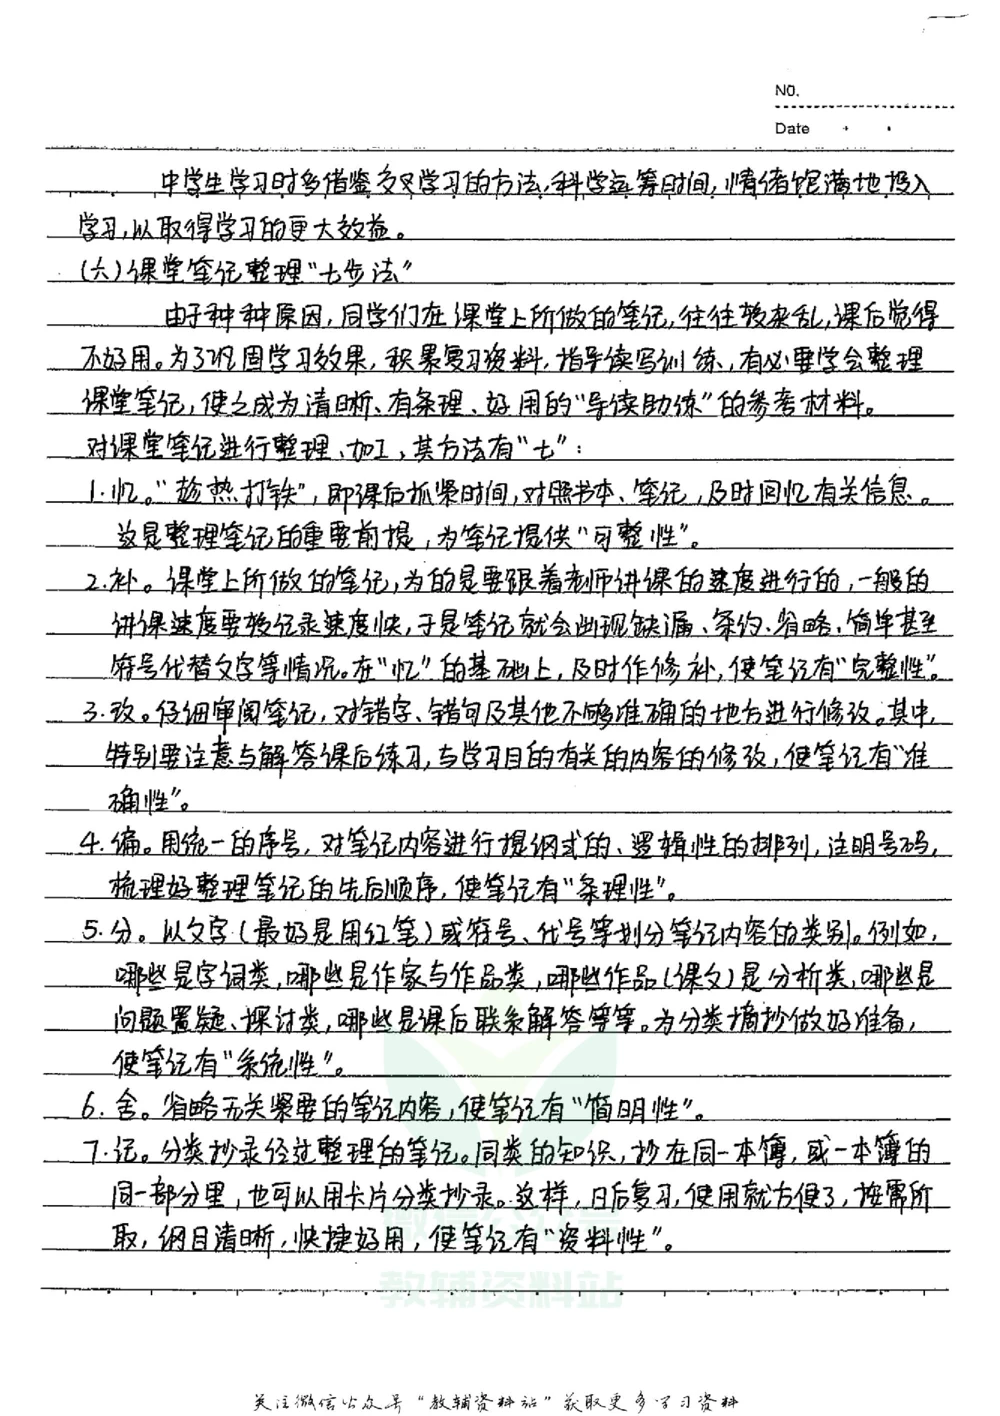 NO.
Date
中学生学习时多借鉴交叉学习的方法,科学运筹时间,情绪饱满地投入
学习,以取得学习的更大效益。
(六)课堂笔记整理“七步法”
由于种种原因,同学们在课堂上所做的笔记,往往较杂乱,课后觉得
不好用。为了巩固学习效果,积累复习资料,指导读写训练,有必要学会整理
课堂笔记,使之成为清晰、有条理、好用的“导读助练”的参考材料。
对课堂笔记进行整理、加工,其方法有“七”:
1.忆。“趁热打铁”,即课后抓紧时间,对照书本、笔记,及时回忆有关信息。
这是整理笔记的重要前提,为笔记提供“可整性”。
2.补。课堂上所做的笔记,为的是要跟着老师讲课的速度进行的,一般的
讲课速度要较记录速度快,于是笔记就会出现缺漏、条约、省略、简单甚至
符号代替文字等情况。在“忆”的基础上,及时作修补,使笔记有“完整性”。
3.改。仔细审阅笔记,对错字、错句及其他不够准确的地方进行修改。其中,
特别要注意与解答课后练习,与学习目的有关的内容的修改,使笔记有“准
确性”。
4.编。用统一的序号,对笔记内容进行提纲式的、逻辑性的排列,注明号码,
梳理好整理笔记的先后顺序,使笔记有“条理性”。
5.分。以文字(最好是用红笔)或符号、代号等划分笔记内容的类别。例如,
哪些是字词类,哪些是作家与作品类,哪些作品(课文)是分析类,哪些是
问题置疑、探讨类,哪些是课后联系解答等等。为分类摘抄做好准备,
使笔记有“系统性”。
6.舍。省略无关紧要的笔记内容,使笔记有“简明性”。
7.记。分类抄录经过整理的笔记。同类的知识,抄在同一本簿,或一本簿的
同一部分里,也可以用卡片分类抄录。这样,日后复习,使用就方便了,按需所
取,纲目清晰,快捷好用,使笔记有“资料性”。
微信公众号
教辅资料站
关注微信公众号“教辅资料站”获取更多学习资料